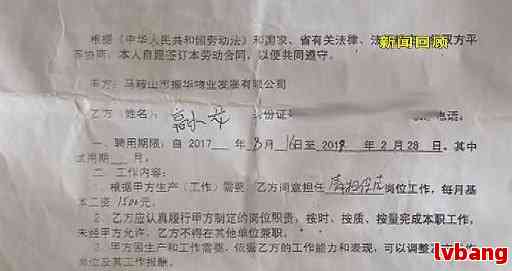 新闻回顾
根据《中华人民共和国劳动法》和国家、省有关法律、法 双方平
等协商，本人自愿签订本劳动合同，以便共同遵守。
甲方：马鞍山市振华物业发展有限公司
乙方（姓名： 身份证 电话：
一、聘用期限：自 2017 年 3月 16日至 2018 年 2 月 28 日。其中
试用期 月。
二、工作内容：
1．根据甲方生产（工作）需要，乙方同意担任 岗位工作，每月基
本工资 1500元
2、乙方应认真履行甲方制定的岗位职责，按时、按质、按量完成本职工作，
未经甲方允许，乙方不得在其他单位兼职。
3．甲方因生产和工作需要，依据乙方的工作能力和表现，可以调整乙 工作
岗位及其工作报酬。
lvbang